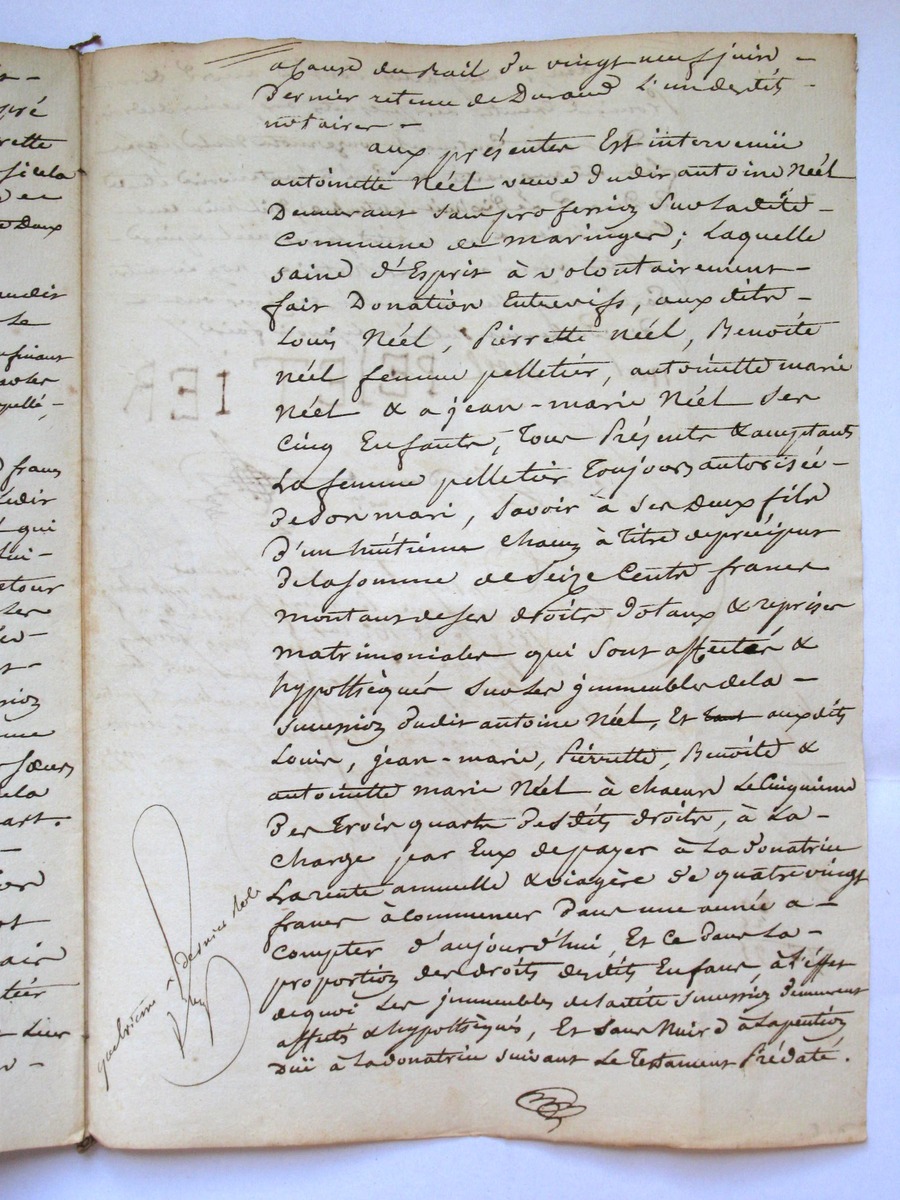 a Cause du bail du vingt neuf juin -
Dernier retenu de Durand L'un desdits -
notaires -
aux présentes Est intervenüe
antoinette Néél veuve dudit antoine Néél
Demeurant sans professioz sur la ditte -
Commune de maringes; Laquelle
saine d'Esprit à volontairement -
fait Donation Entrevifs, aux dits -
Louis Néél, Pierrette Néél, Benoite
Néél femme pelletiér, antoinette marie
Néél & a jean-marie Néél ses
Cinq Enfants, Tous Présents & acceptants
La femme pelletiér Toujours autorisée -
de son mari, Savoir à ses deux fils
d'un huitième chacuz à titre de préciput
de la somme de Seize Cents francs
montant de ses droits dotaux & reprises
matrimoniales qui sont affectés &
hypothèqués sur les jmmeubles de la -
Successioz dudit antoine Néél, Et auxdits
Louis, jean-marie, Pierrette, Benoite &
antoinette marie Néél à chacun Le Cinquieme
Des Trois quarts desdits droits, à La -
Charge par Eux de payer à La donatrice
La rente annuelle & viagère de quatre vingt
francs à Commencer Dans une année a -
Compter d'aujourd'hui, Et ce dans La -
proportioz des droits desdits Enfans, à l'éffet
de quoi Les jmmeubles de la dite Successioz demeurent
affectés & hypothèqués, Et Sans Nuire à La pensioz
Düe à La donatrice suivant Le Testament Prédaté.
quatrieme & dernier role